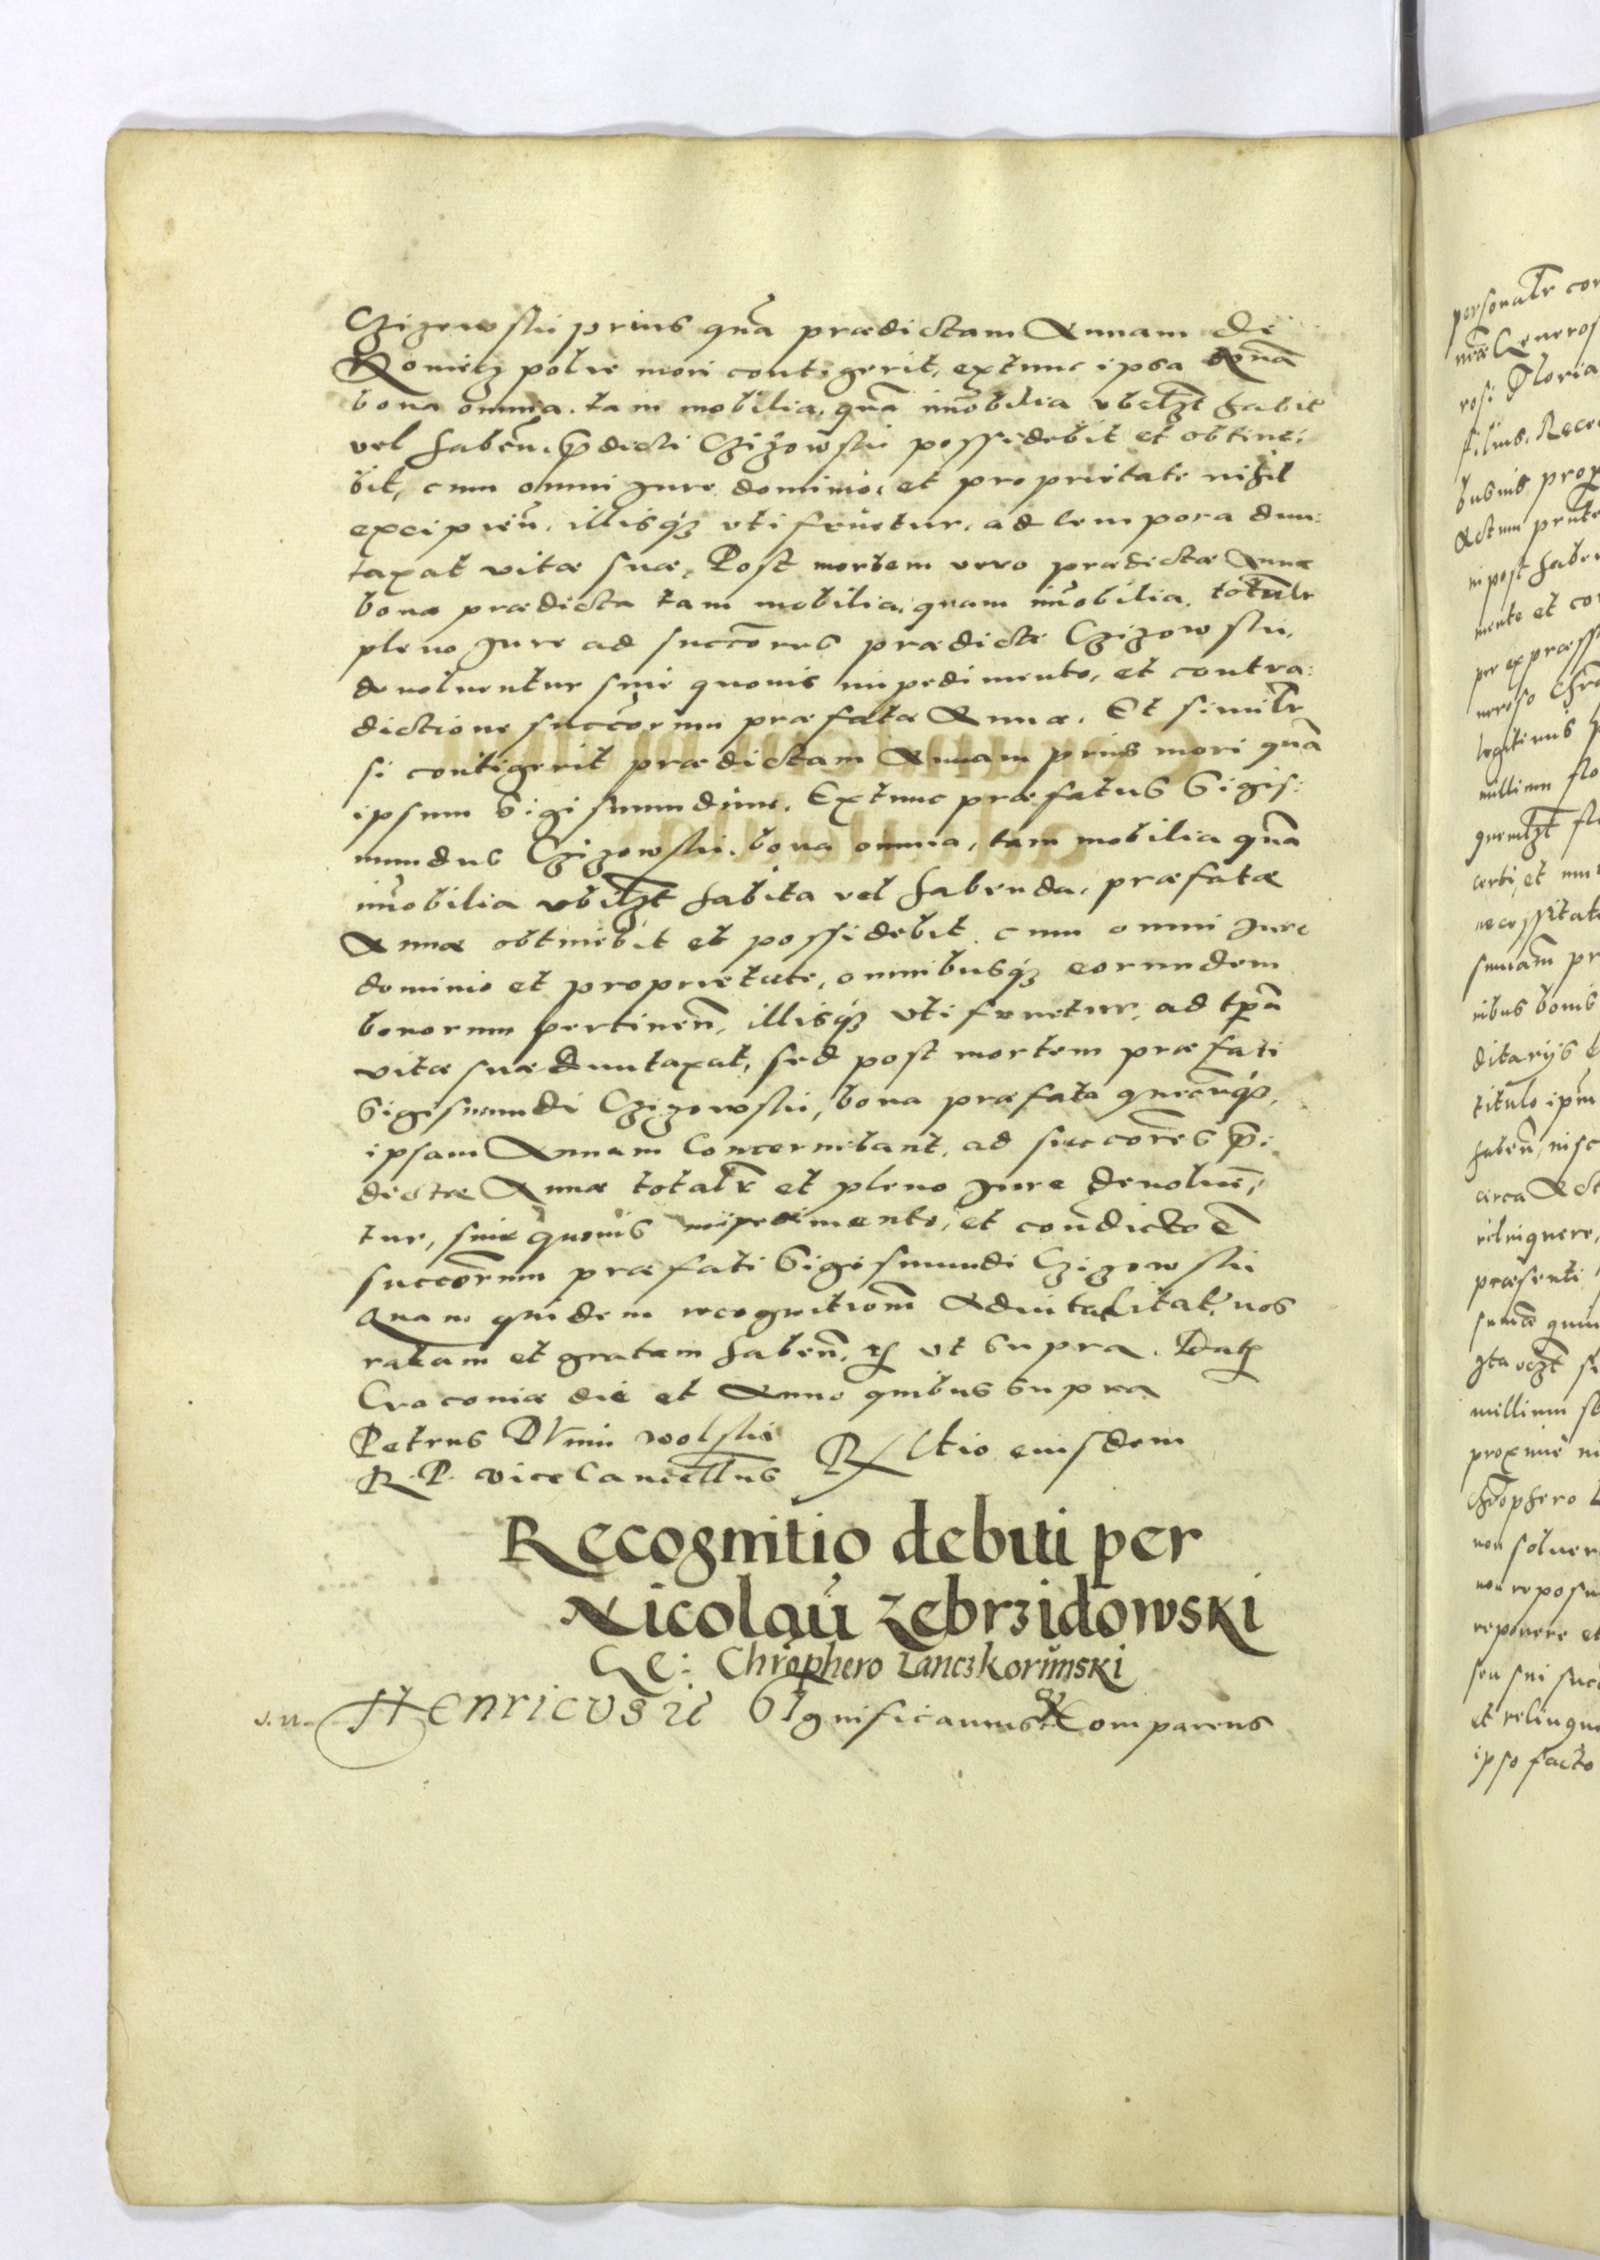 Czizowskii prius quã prædictam Annam de
Koniecz polie mori contigerit, extunc ipsa Anna
bona omnia, tam mobilia, quã im̃obilia vbilzt habit
vel habeñ. p̃dicti Czizowskii possidebit et obtine:
bit, cum omni Jure dominio, et proprietate nihil
excipieñ, illisq3 vti fruetur, ad tempora dun:
taxat vitæ suæ, Post mortem vero prædictæ Annæ
bona prædicta tam mobilia, quam im̃obilia, totalr
pleno Jure ad succores prædicti Czizowskii,
deuoluentur sine quouis impedimento, et contra:
dictione succorum præfatæ Annæ. Et similr
si contigerit prædictam Annam prius mori quã
ipsum Sigismundum. Extunc præfatus Sigis:
mundus Czizowskii, bona omnia, tam mobilia quã
im̃obilia vbilzt habita vel habenda, præfatæ
Annæ obtinebit et possidebit cum omni Jure
dominio et proprietate, omnibusq3 eorundem
bonorum pertineñ, illisq3 vti fruetur, ad tp̃a
vitæ suæ duntaxat, sed post mortem præfati
Sigismundi Czizowskii, bona præfata quæcunq3,
ipsam Annam Concernebant, ad succores p̃:
dictæ Annæ totalr et pleno Jure deuoluẽ,
tur, sine quouis impedimento, et condictoẽ
succorum præfati Sigismundi Czizowskii
Quam quidem recognitiom Aduitalitat, nos
ratam et gratam habeñ, ut supra. Dat
Cracouiæ die et Anno quibus supra
Petrus Dunin wolskii
R. P. Vice Cancellrius Rltio eiusdem
Recognitio debiti per
Nicolaũ Zebrzidowski
Ge: Chrophero Lanczkorunski
Henricus zc Significamus zc Comparens